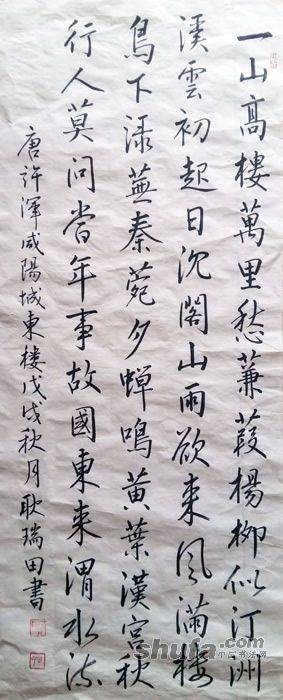 一山高樓萬里愁蒹葭楊柳似汀洲
溪雲初起日沉閣山雨欲來風滿樓
鳥下渌蕪秦菀夕蟬鳴黃葉漢宮秋
行人莫問當年事故國東來渭水流
唐許渾咸陽城東楼戊戌秋月耿瑞田書
shufa.com